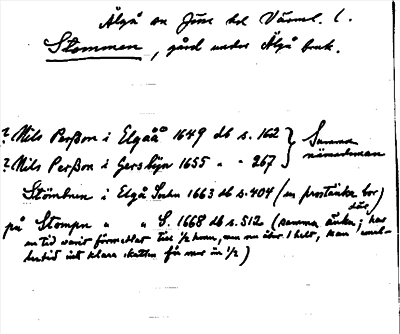 Älgå sn Jösse hd Värml. l.
Stommen, gård under Älgå bruk.
? Nils Perßon i Elgåå 1649 db s. 162 } Samma
? Nils Perßon i Gersbyn 1655 " " 267 } nämndeman
Stömbnen i Elgå Sochn 1663 db s. 404 (en prostänka bor där)
på Stompn " " S. 1668 db s. 512 (samma änka; har
en tid varit förmedlat till 1/2 hemn, men nu åter 1 helt, kan
icke klara skatten för mer än 1/2)